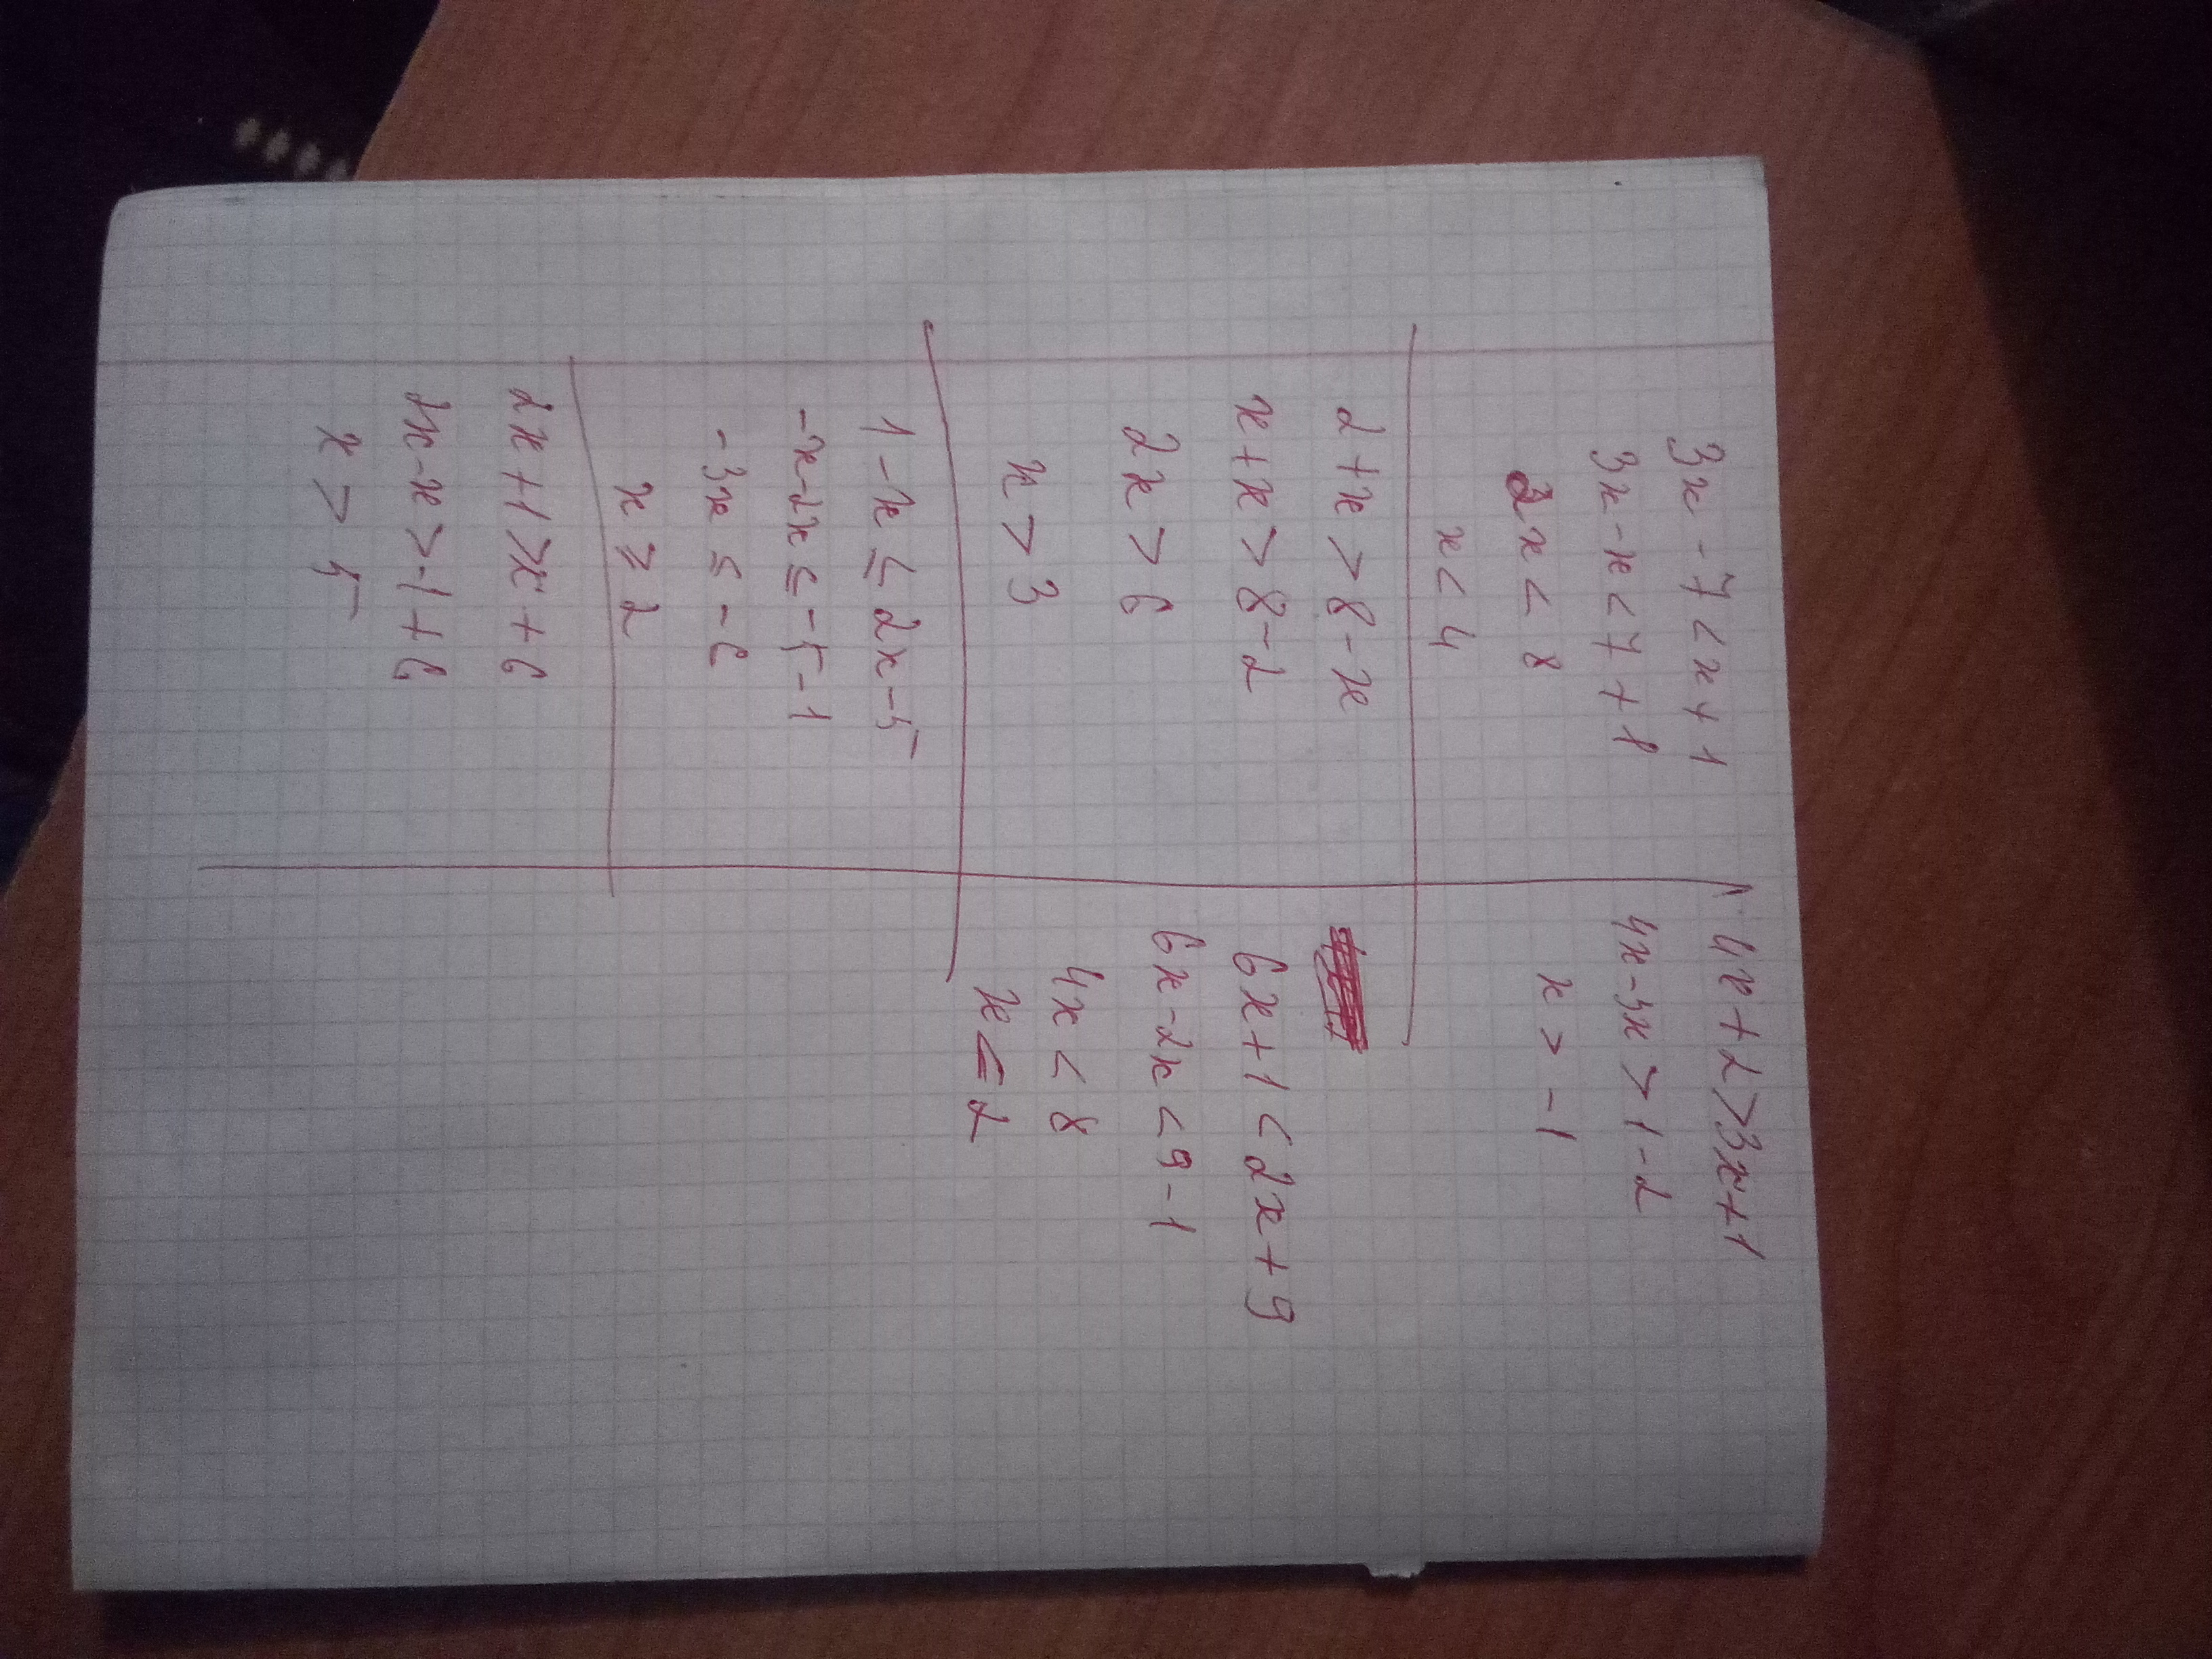 3x - 7 < x + 1
3x - x < 7 + 1
2x < 8
x < 4
2 + x > 8 - x
x + x > 8 - 2
2x > 6
x > 3
1 - x ≤ 2x - 5
-x - 2x ≤ -5 - 1
-3x ≤ -6
x ≥ 2
2x + 1 > x + 6
2x - x > -1 + 6
x > 5
4x + 2 > 3x + 1
4x - 3x > 1 - 2
x > -1
6x + 1 < 2x + 9
6x - 2x < 9 - 1
4x < 8
x ≤ 2